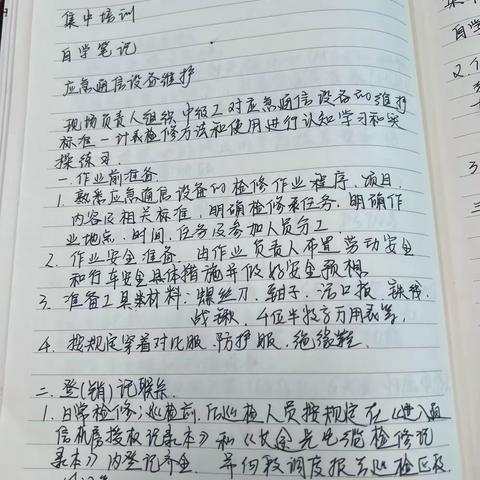 集中培训
自学笔记
应急通信设备维护
现场负责人组织中级工对应急通信设备的维护
标准一计表检修方法和使用进行认知学习和实
操练习.
一.作业前准备.
1. 熟悉应急通信设备的检修作业程序、项目、
内容及相关标准,明确检修表任务,明确作
业地点、时间、任务及参加人员分工.
2. 作业安全准备 由作业负责人布置劳动安全
和行车安全具体措施并做好安全预想.
3. 准备工具和材料:螺丝刀、钳子、活口扳、铁线、
战锹、4位半数字万用表等,
4. 按规定穿着对比服、防护服、绝缘鞋.
二.登(销)记联系.
1. 日常检修:巡检前,巡检人员按规定在《进入通
信机房授权记录本》和《光电缆检修记
录本》内登记齐全. 并向段调度报告巡检区段
集
自学
2.
3
三